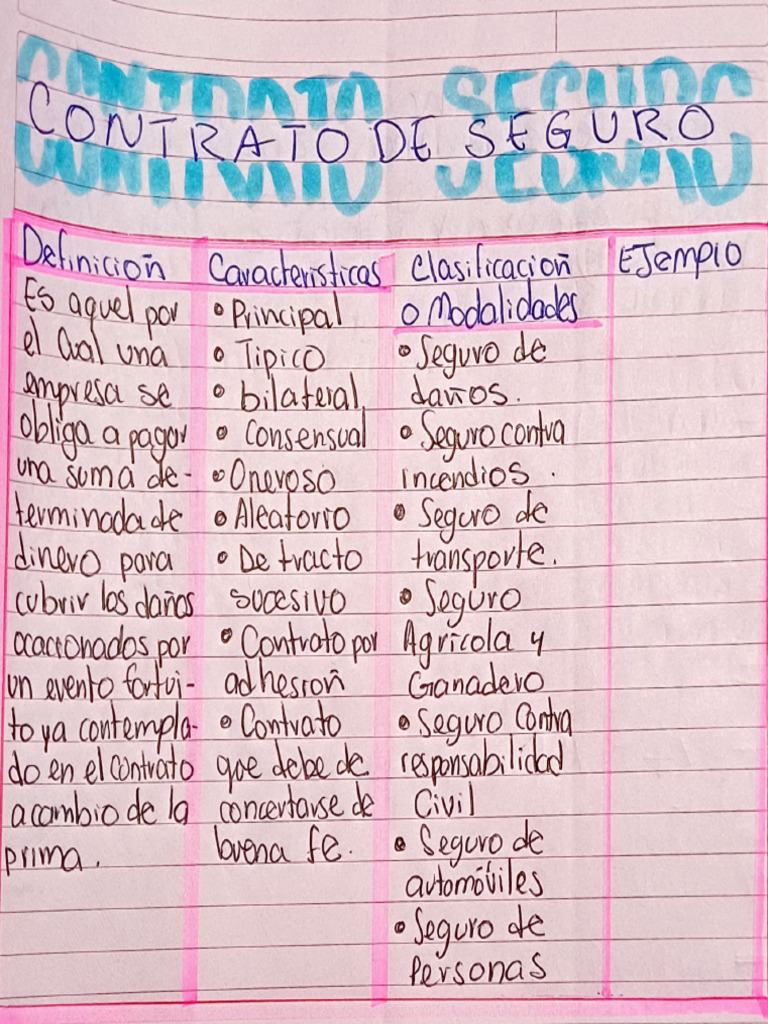 CONTRATO SEGURO
CONTRATO DE SEGURO
Definición
Es aquel por
el cual una
empresa se
obliga a pagar
una suma de-
terminada de
dinero para
cubrir los daños
ocacionados por
un evento fortui-
to ya contempla-
do en el contrato
a cambio de la
prima.
Características
• Principal
• Tipico
• bilateral
• Consensual
• Oneroso
• Aleatorio
• De tracto
sucesivo
• Contrato por
adhesión
• Contrato
que debe de
concertarse de
buena fe.
Clasificación
o Modalidades
• Seguro de
daños.
• Seguro contra
incendios.
• Seguro de
transporte.
• Seguro
Agrícola y
Ganadero
• Seguro Contra
responsabilidad
Civil
• Seguro de
automóviles
• Seguro de
Personas
EJemplo